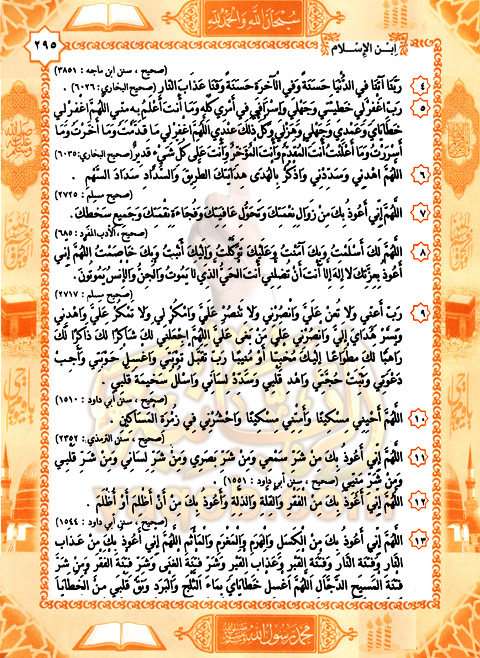 سُبْحَانَ اللهِ وَالْحَمْدُ لِلّٰهِ
۲۹۵
ابن الإسلام
(صحيح ، سنن ابن ماجه : ۳۸۵۱)
٤ رَبَّنَا آتِنَا فِي الدُّنْيَا حَسَنَةً وَفِي الْآخِرَةِ حَسَنَةً وَقِنَا عَذَابَ النَّارِ (صحيح البخاري: ٦٠٢٦)
٥ رَبِّ اغْفِرْ لِي خَطِيئَتِي وَجَهْلِي وَإِسْرَافِي فِي أَمْرِي كُلِّهِ وَمَا أَنْتَ أَعْلَمُ بِهِ مِنِّي اللَّهُمَّ اغْفِرْ لِي
خَطَايَايَ وَعَمْدِي وَجَهْلِي وَهَزْلِي وَكُلُّ ذَلِكَ عِنْدِي اللَّهُمَّ اغْفِرْ لِي مَا قَدَّمْتُ وَمَا أَخَّرْتُ وَمَا
أَسْرَرْتُ وَمَا أَعْلَنْتُ أَنْتَ الْمُقَدِّمُ وَأَنْتَ الْمُؤَخِّرُ وَأَنْتَ عَلَى كُلِّ شَيْءٍ قَدِيرٌ (صحيح البخاري: ٦٠٣٥)
٦ اللَّهُمَّ اهْدِنِي وَسَدِّدْنِي وَاذْكُرْ بِالْهُدَى هِدَايَتَكَ الطَّرِيقَ وَالسَّدَادِ سَدَادَ السَّهْمِ .
(صحيح مسلم : ۲۷۲۵)
٧ اللَّهُمَّ إِنِّي أَعُوذُ بِكَ مِنْ زَوَالِ نِعْمَتِكَ وَتَحَوُّلِ عَافِيَتِكَ وَفُجَاءَةِ نِقْمَتِكَ وَجَمِيعِ سَخَطِكَ.
(صحيح ، الأدب المفرد : ٦٨٥)
٨ اللَّهُمَّ لَكَ أَسْلَمْتُ وَبِكَ آمَنْتُ وَعَلَيْكَ تَوَكَّلْتُ وَإِلَيْكَ أَنَبْتُ وَبِكَ خَاصَمْتُ اللَّهُمَّ إِنِّي
أَعُوذُ بِعِزَّتِكَ لَا إِلٰهَ إِلَّا أَنْتَ أَنْ تُضِلَّنِي أَنْتَ الْحَيُّ الَّذِي لَا يَمُوتُ وَالْجِنُّ وَالْإِنْسُ يَمُوتُونَ.
(صحيح مسلم : ۲۷۱۷)
٩ رَبِّ أَعِنِّي وَلَا تُعِنْ عَلَيَّ وَانْصُرْنِي وَلَا تَنْصُرْ عَلَيَّ وَامْكُرْ لِي وَلَا تَمْكُرْ عَلَيَّ وَاهْدِنِي
وَيَسِّرْ هُدَايَ إِلَيَّ وَانْصُرْنِي عَلَى مَنْ بَغَى عَلَيَّ اللَّهُمَّ اجْعَلْنِي لَكَ شَاكِرًا لَكَ ذَاكِرًا لَكَ
رَاهِبًا لَكَ مِطْوَاعًا إِلَيْكَ مُخْبِتًا أَوْ مُنِيبًا رَبِّ تَقَبَّلْ تَوْبَتِي وَاغْسِلْ حَوْبَتِي وَأَجِبْ
دَعْوَتِي وَثَبِّتْ حُجَّتِي وَاهْدِ قَلْبِي وَسَدِّدْ لِسَانِي وَاسْلُلْ سَخِيمَةَ قَلْبِي.
(صحيح ، سنن أبي داود : ۱۵۱۰)
١٠ اللَّهُمَّ أَحْيِنِي مِسْكِينًا وَأَمِتْنِي مِسْكِينًا وَاحْشُرْنِي فِي زُمْرَةِ الْمَسَاكِينِ .
(صحيح ، سنن الترمذي : ۲۳۵۲)
١١ اللَّهُمَّ إِنِّي أَعُوذُ بِكَ مِنْ شَرِّ سَمْعِي وَمِنْ شَرِّ بَصَرِي وَمِنْ شَرِّ لِسَانِي وَمِنْ شَرِّ قَلْبِي
وَمِنْ شَرِّ مَنِيِّي (صحيح ، سنن أبي داود : ۱۵۵۱)
١٢ اللَّهُمَّ إِنِّي أَعُوذُ بِكَ مِنَ الْفَقْرِ وَالْقِلَّةِ وَالذِّلَّةِ وَأَعُوذُ بِكَ مِنْ أَنْ أَظْلِمَ أَوْ أُظْلَمَ .
(صحيح ، سنن أبي داود : ۱۵٤٤)
١٣ اللَّهُمَّ إِنِّي أَعُوذُ بِكَ مِنَ الْكَسَلِ وَالْهَرَمِ وَالْمَغْرَمِ وَالْمَأْثَمِ اللَّهُمَّ إِنِّي أَعُوذُ بِكَ مِنْ عَذَابِ
النَّارِ وَفِتْنَةِ النَّارِ وَفِتْنَةِ الْقَبْرِ وَعَذَابِ الْقَبْرِ وَمِنْ شَرِّ فِتْنَةِ الْغِنَى وَشَرِّ فِتْنَةِ الْفَقْرِ وَمِنْ شَرِّ
فِتْنَةِ الْمَسِيحِ الدَّجَّالِ اللَّهُمَّ اغْسِلْ خَطَايَايَ بِمَاءِ الثَّلْجِ وَالْبَرَدِ وَنَقِّ قَلْبِي مِنَ الْخَطَايَا
محمد رسول الله ﷺ